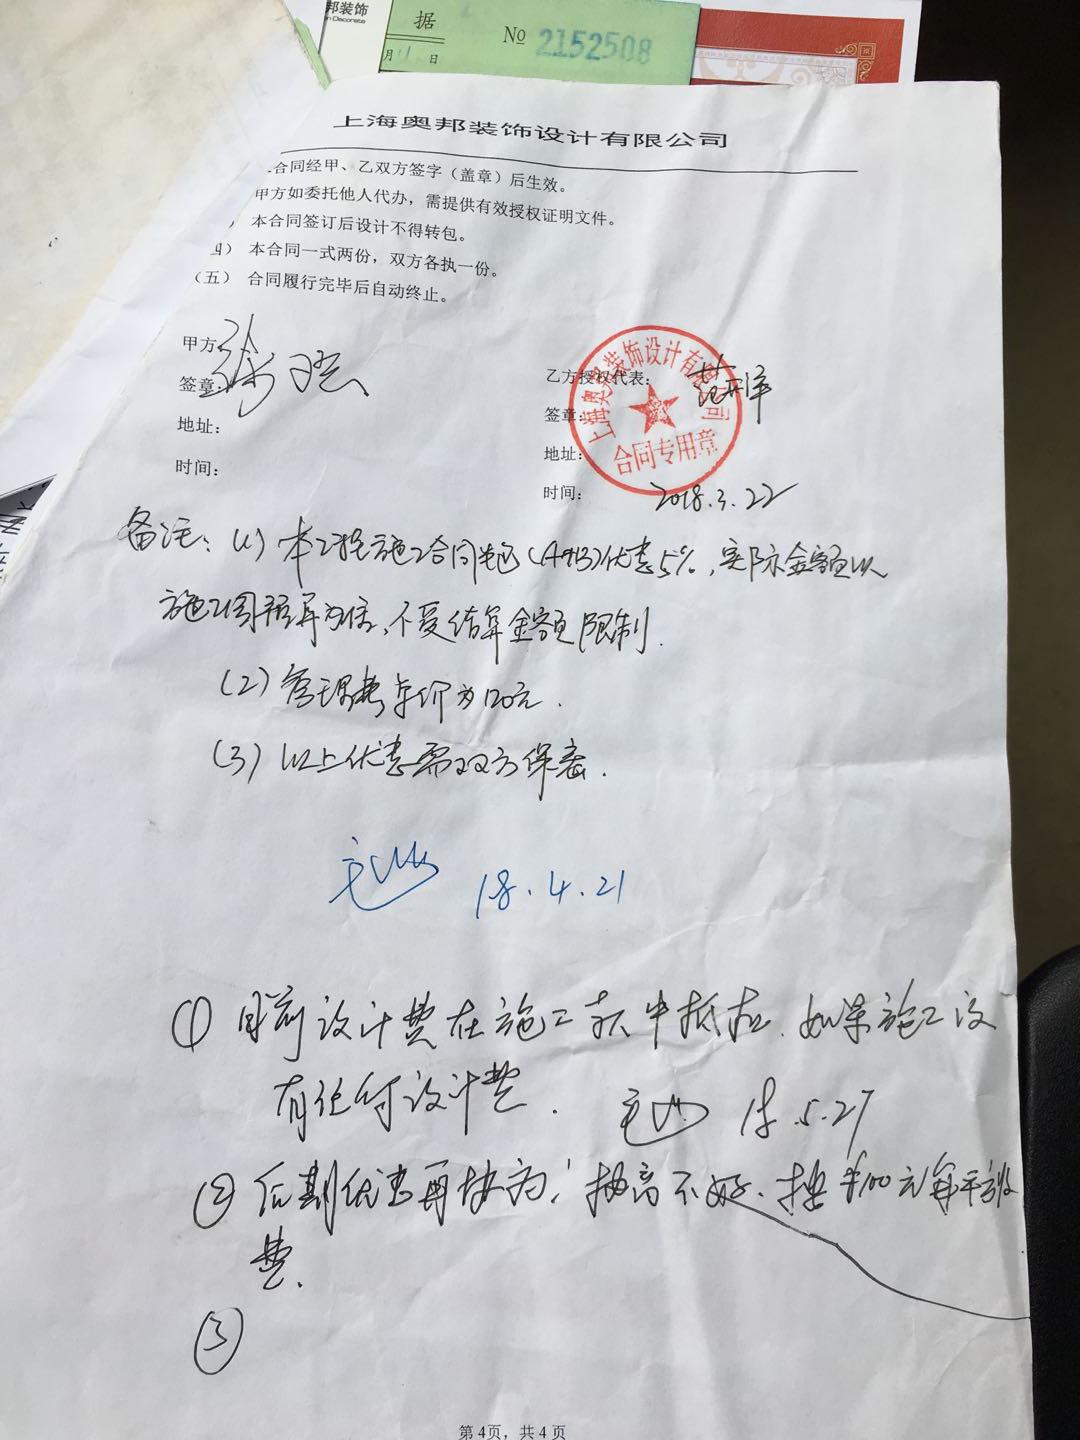 邦装饰
据
№ 2152508
月 11 日
上海奥邦装饰设计有限公司
合同经甲、乙双方签字（盖章）后生效。
甲方如委托他人代办，需提供有效授权证明文件。
） 本合同签订后设计不得转包。
四） 本合同一式两份，双方各执一份。
（五） 合同履行完毕后自动终止。
甲方
签章:
地址:
时间:
乙方授权代表:
签章:
地址:
时间: 2018.3.22
上海奥邦装饰设计有限公司
合同专用章
备注: (1) 本工程施工合同 (A+B)优惠5%,实际金额以
施工图预算为准,不受结算金额限制.
(2) 管理费单价为120元.
(3) 以上优惠需双方保密.
18.4.21
① 目前设计费在施工款中抵扣.如果施工没
有任何设计费.
18.5.27
② 后期优惠再协商,
费.
③
第4页，共4页